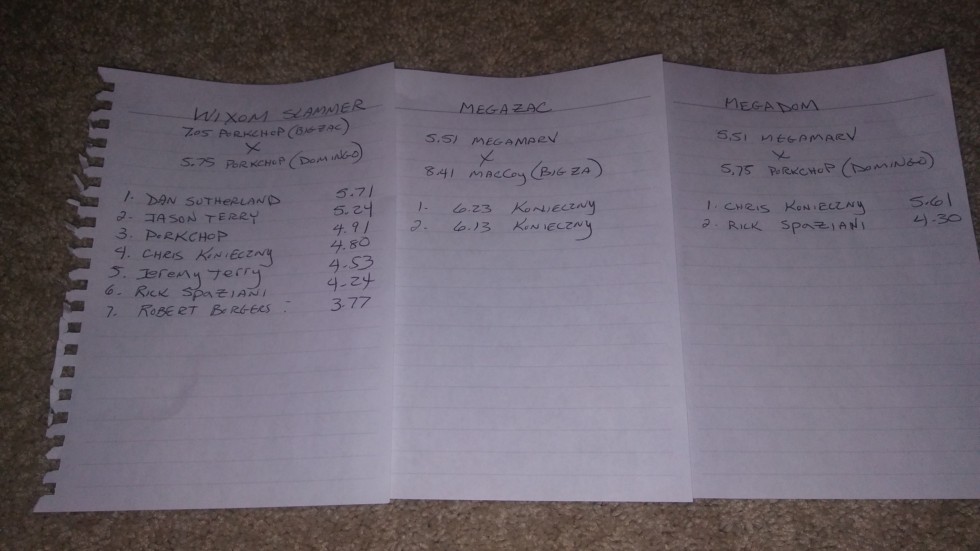 WIXOM SLAMMER
7.05 PORKCHOP (BIGZAC)
X
5.75 PORKCHOP (DOMINGO)
1. DAN SUTHERLAND 5.71
2. JASON TERRY 5.24
3. PORKCHOP 4.91
4. CHRIS KONIECZNY 4.80
5. Jeremy Terry 4.53
6. RICK SPAZIANI 4.24
7. ROBERT BORGERS : 3.77
MEGAZAC
5.51 MEGAMARV
X
8.41 MACCOY (BIG ZA)
1. 6.23 KONIECZNY
2. 6.13 KONIECZNY
MEGADOM
5.51 MEGAMARV
X
5.75 PORKCHOP (DOMINGO)
1. CHRIS KONIECZNY 5.61
2. RICK SPAZIANI 4.30